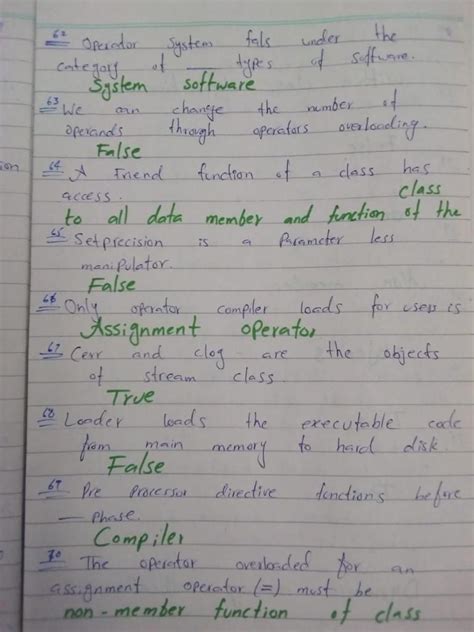 62 Operador System fals under the
category of ___ types of software.
System software
63 We can change the number of
operands through operators overloading.
False
64 A Friend function of a class has
access. class
to all data member and function of the
65 Setprecision is a Parameter less
manipulator.
False
66 Only operator compiler loads for users is
Assignment operator
67 Cerr and clog are the objects
of stream class.
True
68 Loader loads the executable code
from main memory to hard disk.
False
69 Pre Processor directive functions before
— Phase.
Compiler
70 The operator overloaded for an
assignment operator (=) must be
non-member function of class
ion